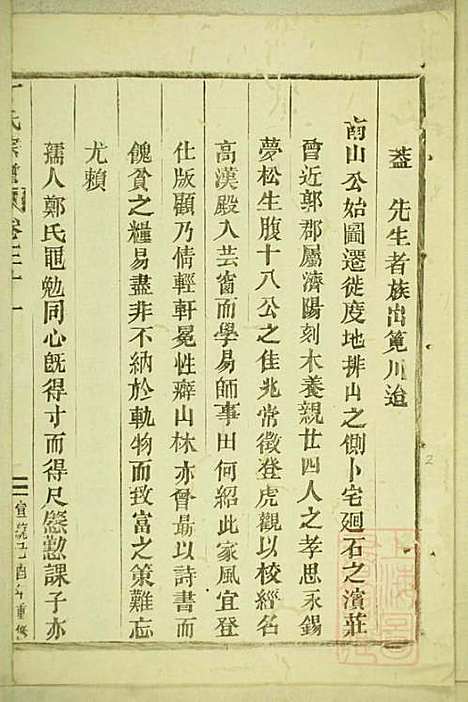 葢　先生者族出篔川迨
南山公始圖遷徙度地排山之側卜宅廻石之濱莊
曾近郭郡屬濟陽刻木養親廿四人之孝思永錫
夢松生腹十八公之佳兆常徵登虎觀以校經名
高漢殿入芸窗而學易師事田何紹此家風宜登
仕版顧乃情輕軒冕性癖山林亦曾勗以詩書而
愧貧之糧易盡非不納於軌物而致富之策難忘
尤賴
孺人鄭氏黽勉同心旣得寸而得尺慇懃課子亦
氏宗譜 卷二十一
宣統己酉年重修